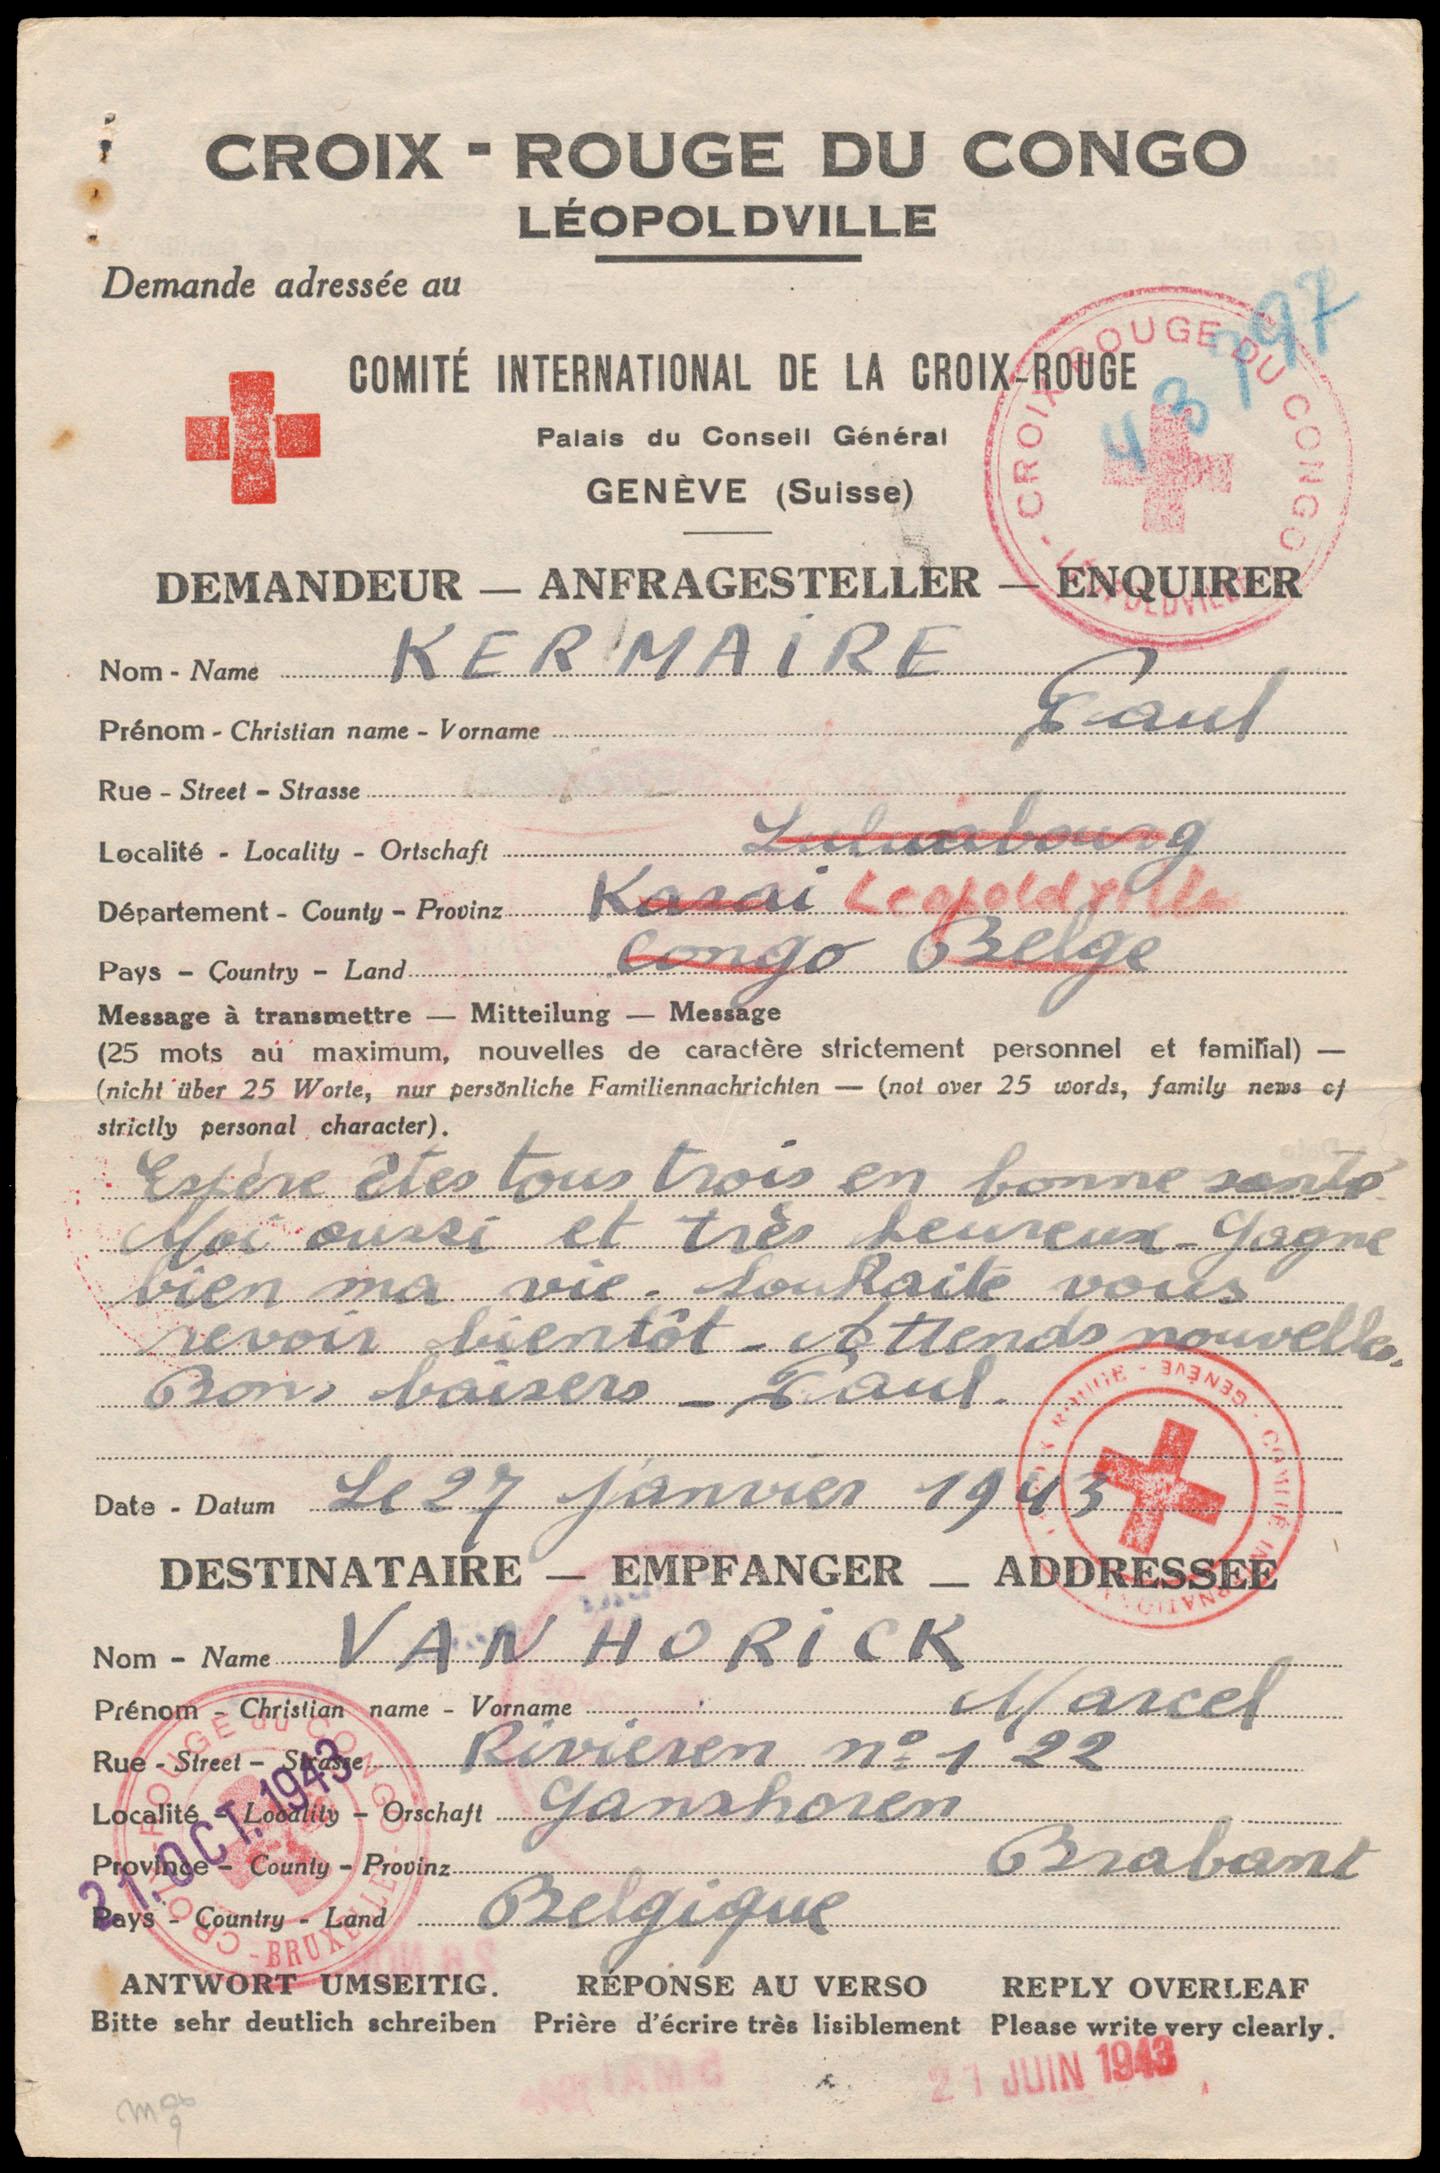 CROIX - ROUGE DU CONGO
LÉOPOLDVILLE
Demande adressée au
COMITÉ INTERNATIONAL DE LA CROIX-ROUGE
Palais du Conseil Général
GENÈVE (Suisse)
CROIX ROUGE DU CONGO - LEOPOLDVILLE -
DEMANDEUR — ANFRAGESTELLER — ENQUIRER
Nom - Name KERMAIRE
Prénom - Christian name - Vorname Paul
Rue - Street - Strasse
Localité - Locality - Ortschaft Luluabourg
Département - County - Provinz Kasai Leopoldville
Pays - Country - Land Congo Belge
Message à transmettre — Mitteilung — Message
(25 mots au maximum, nouvelles de caractère strictement personnel et familial) —
(nicht über 25 Worte, nur persönliche Familiennachrichten — (not over 25 words, family news of
strictly personal character).
Espère êtes tous trois en bonne santé
Moi aussi et très heureux - Gagne
bien ma vie. Souhaite vous
revoir bientôt - Attends nouvelles.
Bons baisers - Paul.
CROIX-ROUGE - GENÈVE - COMITÉ INTERNATIONAL
Date - Datum Le 27 janvier 1943
DESTINATAIRE — EMPFANGER — ADDRESSEE
Nom - Name VAN HORICK
Prénom - Christian name - Vorname Marcel
Rue - Street - Strasse Rivieren nº 122
Localité - Locality - Orschaft Ganshoren
Province - County - Provinz Brabant
Pays - Country - Land Belgique
CROIX ROUGE du CONGO - BRUXELLES -
21. OCT. 1943
ANTWORT UMSEITIG. RÉPONSE AU VERSO REPLY OVERLEAF
Bitte sehr deutlich schreiben Prière d'écrire très lisiblement Please write very clearly.
21 JUIN 1943